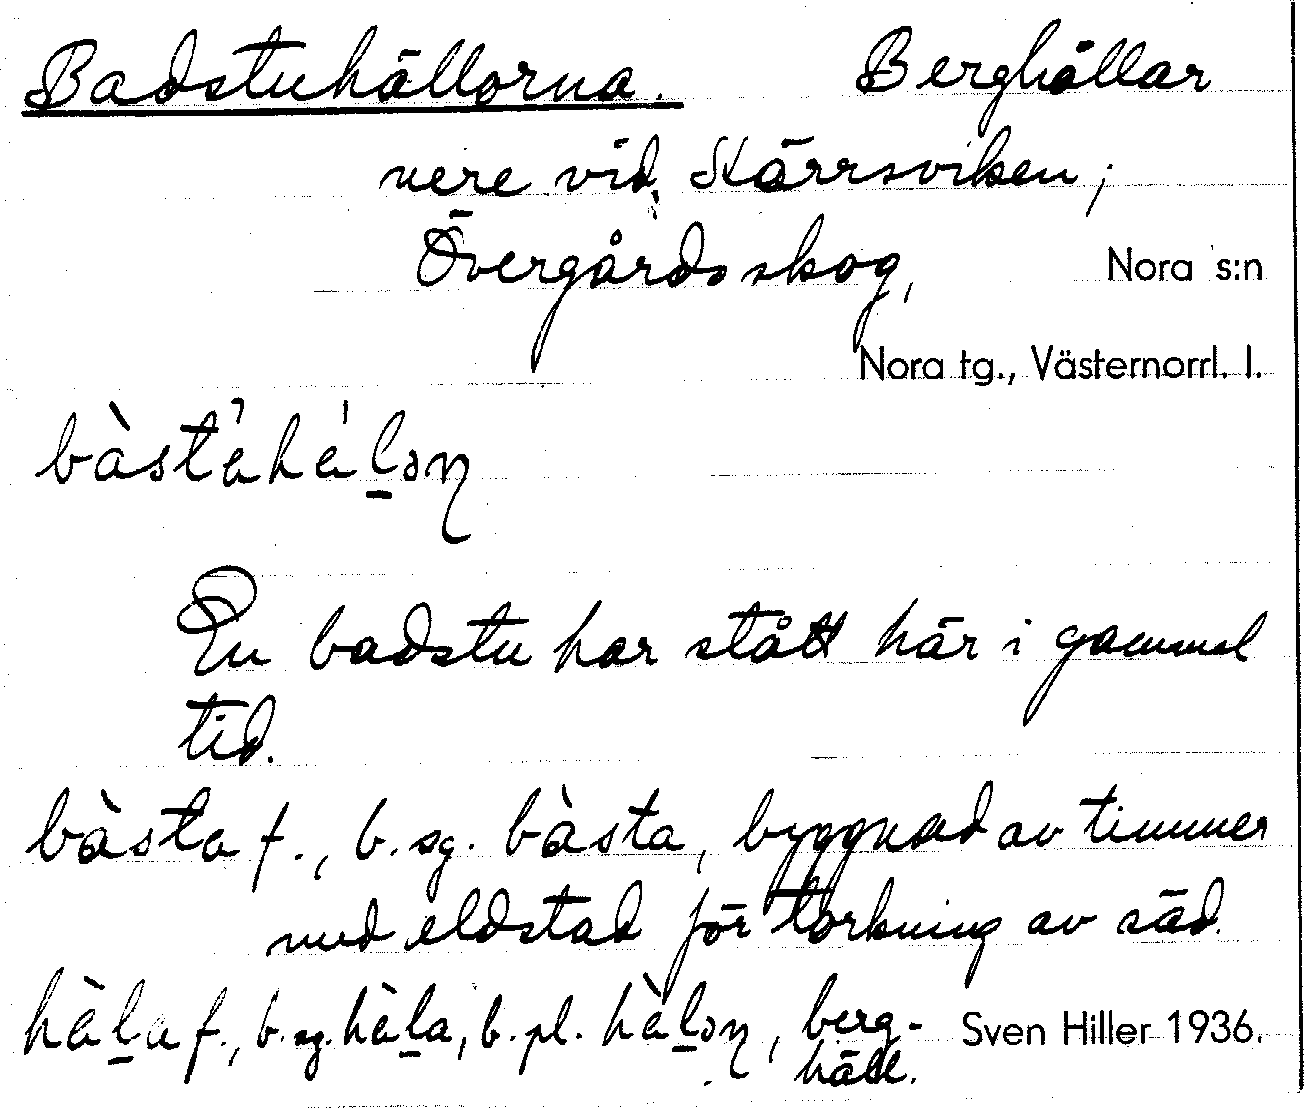 Badstuhällorna. Berghällar
nere vid Kärrsviken,
Övergårdsskog, Nora s:n
Nora tg., Västernorrl. l.
En badstu har stått här i gammal
tid.
bàsta f., b. sg. bàsta, byggnad av timmer
med eldstad för torkning av säd.
f., b. sg. b. pl. berg- Sven Hiller 1936.
häll.